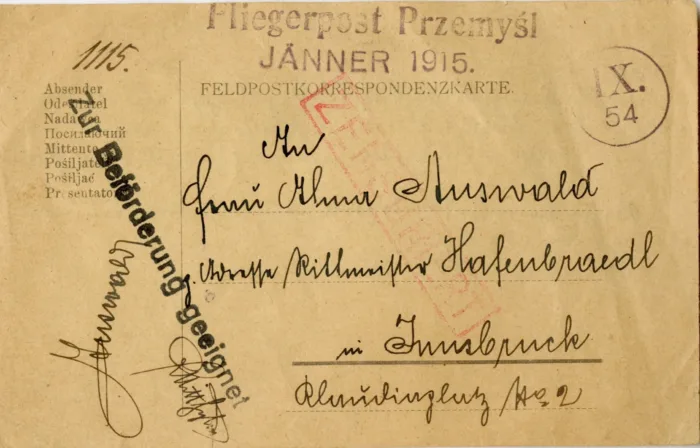 Fliegerpost Przemyśl
JÄNNER 1915.
1115.
FELDPOSTKORRESPONDENZKARTE.
IX.
54
Absender
Odesílatel
Nadawca
Посилаючий
Mittente
Pošiljatelj
Pošiljač
Presentator
Zur Beförderung geeignet
ZENSURIERT
An
Frau Alma Auswald
p. Adresse Rittmeister Hafenbraedl
in Innsbruck
Klaudiaplatz No 2